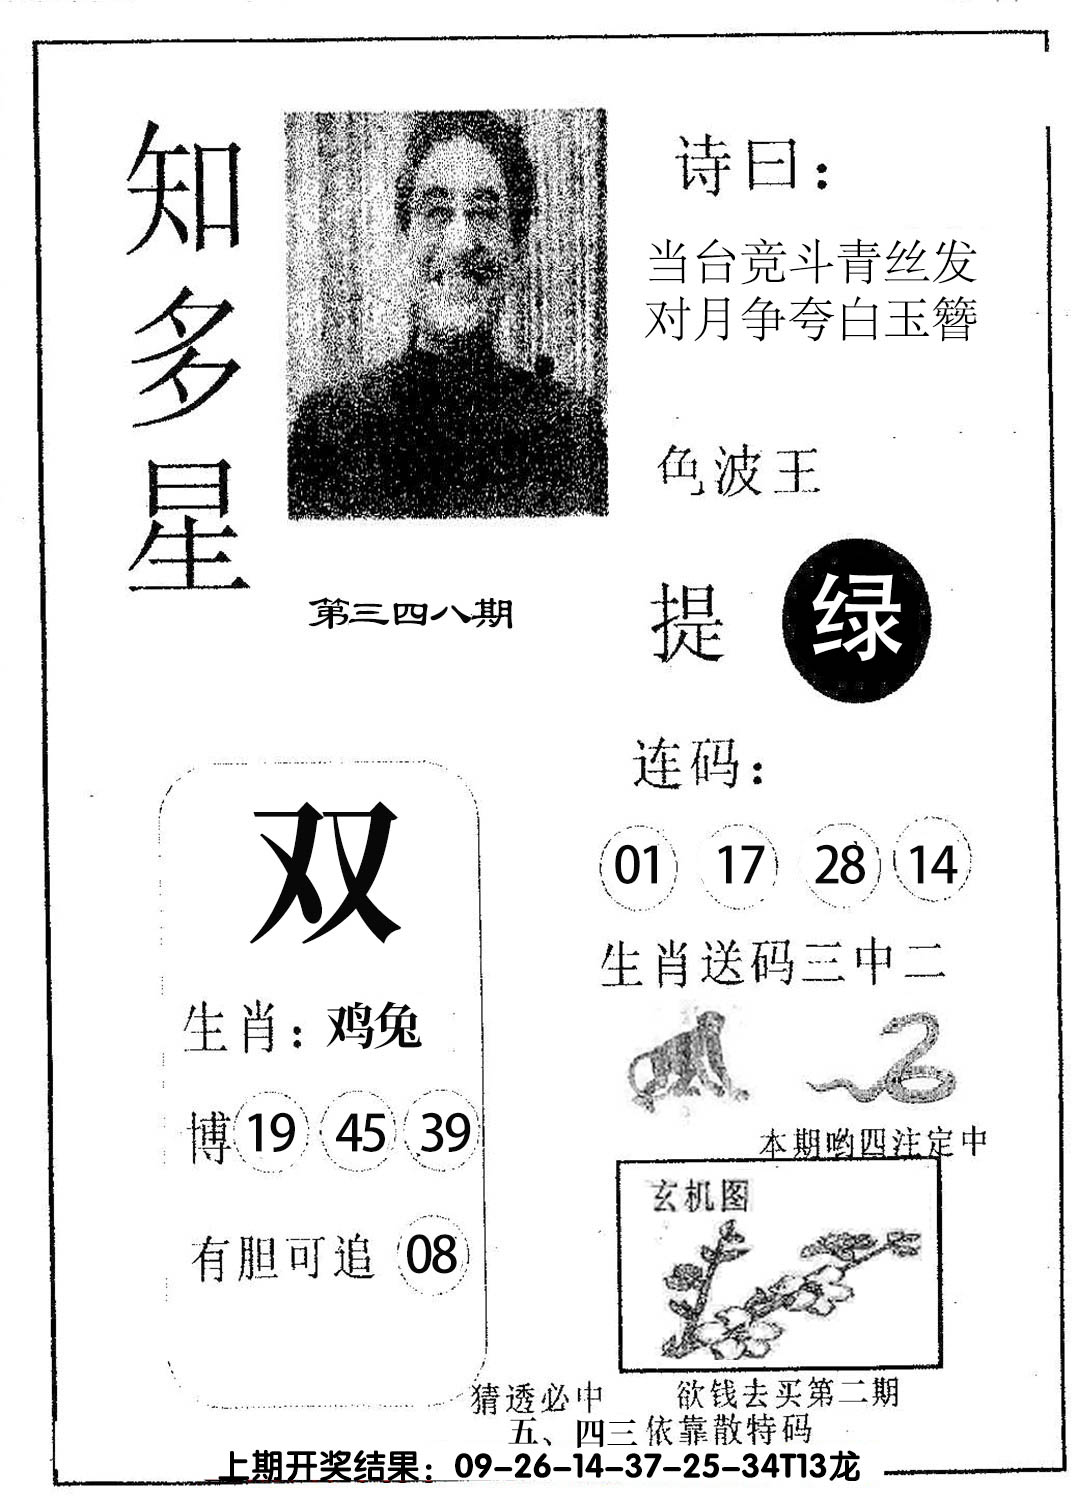 知多星
诗曰：
当台竞斗青丝发
对月争夸白玉簪
色波王
第三四八期
提 绿
连码：
01 17 28 14
双
生肖送码三中二
生肖：鸡兔
博 19 45 39
本期哟四注定中
玄机图
有胆可追 08
猜透必中 欲钱去买第二期
五、四三依靠散特码
上期开奖结果：09-26-14-37-25-34T13龙